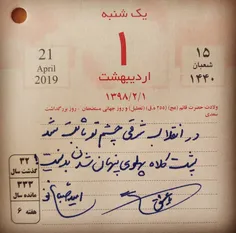 یک شنبه
21
April
2019
۱
اردیبهشت
۱۳۹۸/۲/۱
۱۵
شعبان
۱۴۴۰
ولادت حضرت قائم (عج) (۲۵۵ ه.ق) (تعطیل) و روز جهانی مستضعفان - روز بزرگداشت
سعدی
در انقلاب شرقی چشم تو ثابت شد
پشت کلاه پهلوی پنهان شدن
امید صباغ
۳۲
گذشت سال
۳۳۳
مانده سال
هفته ۶